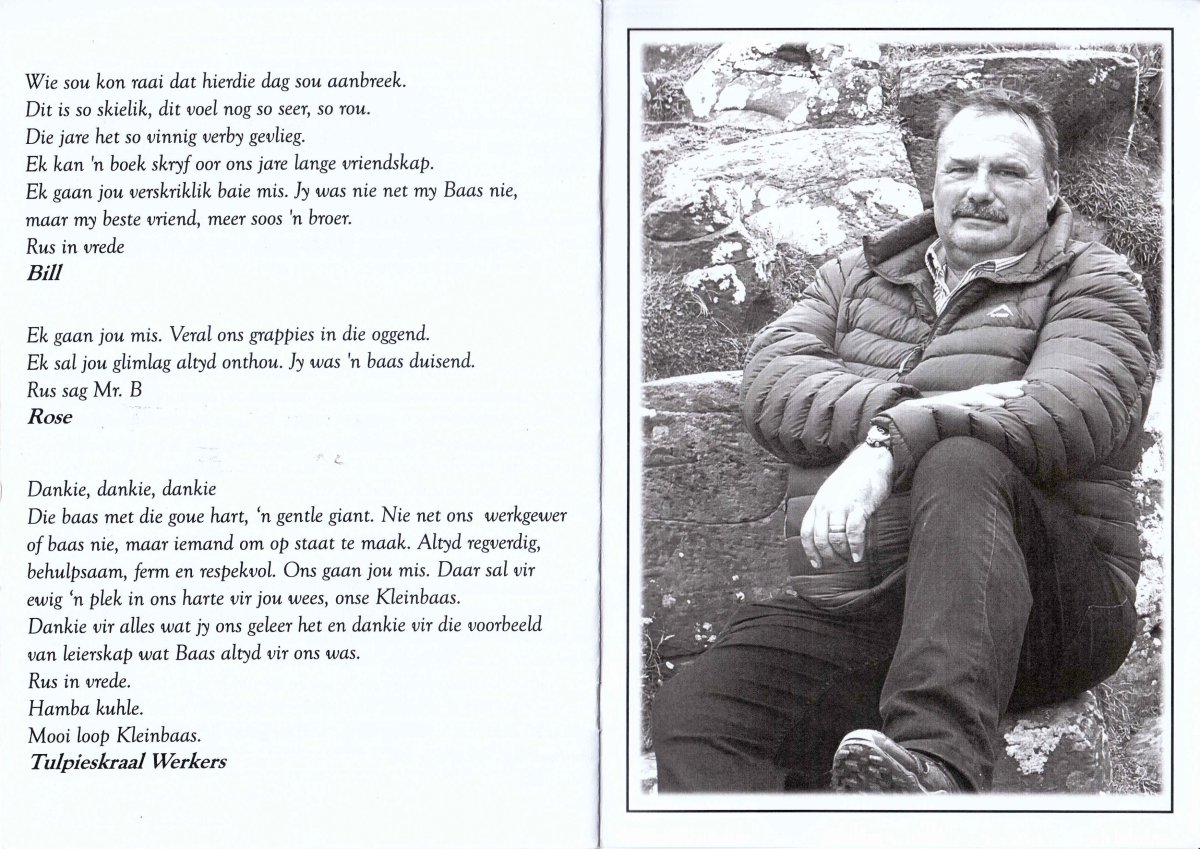 Wie sou kon raai dat hierdie dag sou aanbreek.
Dit is so skielik, dit voel nog so seer, so rou.
Die jare het so vinnig verby gevlieg.
Ek kan 'n boek skryf oor ons jare lange vriendskap.
Ek gaan jou verskriklik baie mis. Jy was nie net my Baas nie,
maar my beste vriend, meer soos 'n broer.
Rus in vrede
Bill
Ek gaan jou mis. Veral ons grappies in die oggend.
Ek sal jou glimlag altyd onthou. Jy was 'n baas duisend.
Rus sag Mr. B
Rose
Dankie, dankie, dankie
Die baas met die goue hart, ‘n gentle giant. Nie net ons werkgewer
of baas nie, maar iemand om op staat te maak. Altyd regverdig,
behulpsaam, ferm en respekvol. Ons gaan jou mis. Daar sal vir
ewig ‘n plek in ons harte vir jou wees, onse Kleinbaas.
Dankie vir alles wat jy ons geleer het en dankie vir die voorbeeld
van leierskap wat Baas altyd vir ons was.
Rus in vrede.
Hamba kuhle.
Mooi loop Kleinbaas.
Tulpieskraal Werkers